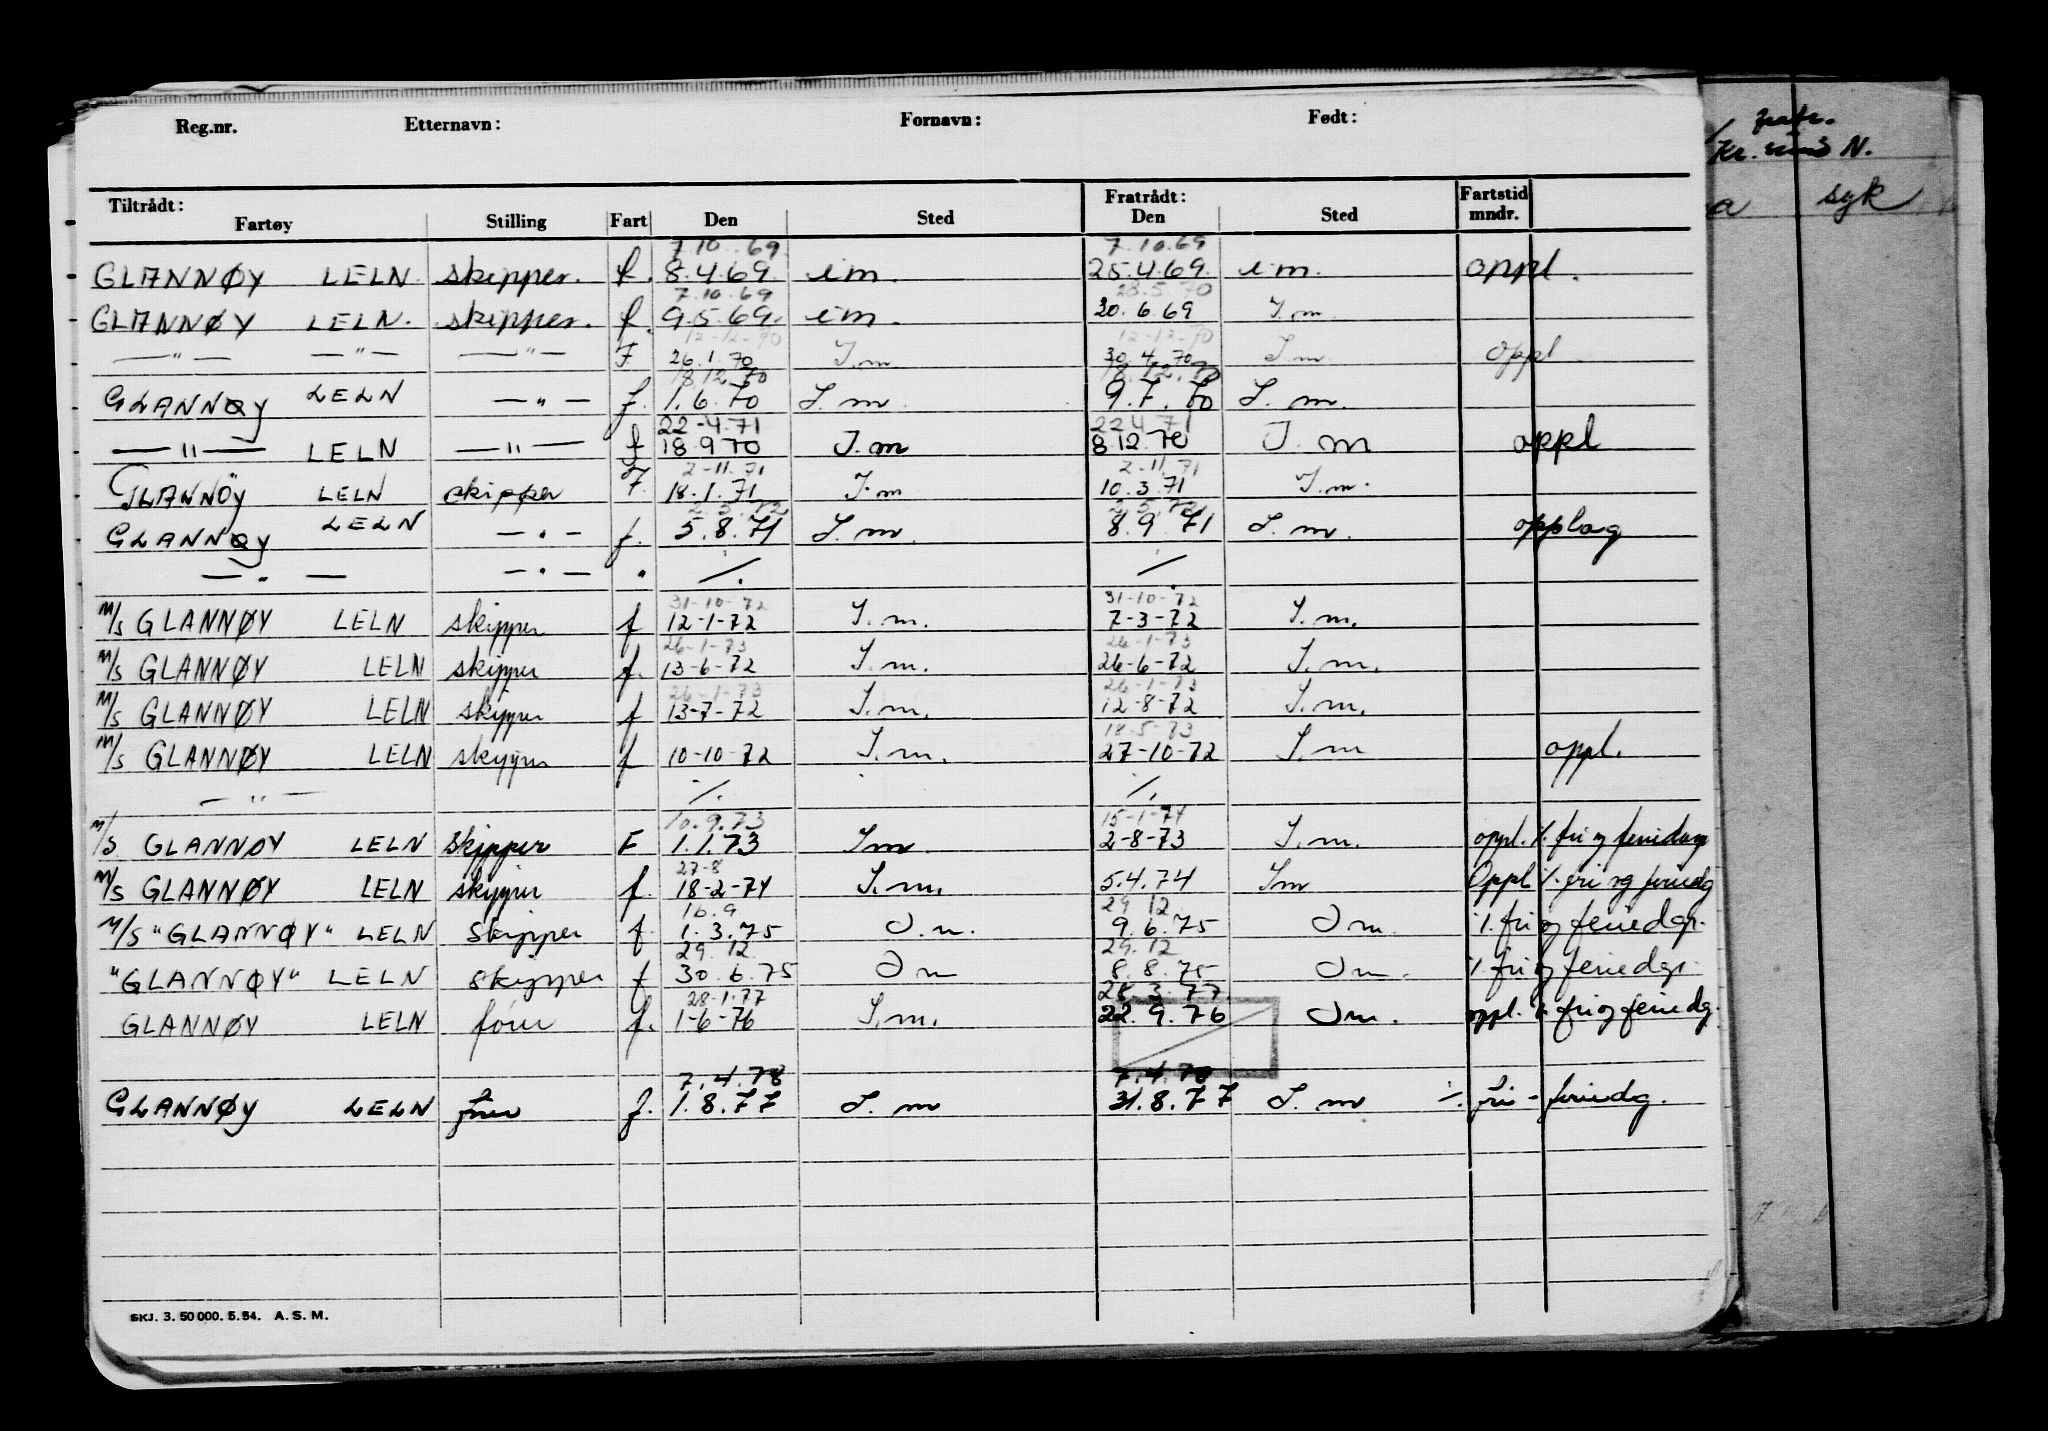 Reg.nr. Etternavn: Fornavn: Født:
Tiltrådt: Fratrådt: Fartstid
Fartøy Stilling Fart Den Sted Den Sted mndr.
7.10.69 7.10.69
GLANNØY LELN. skipper. f. 8.4.69. im. 25.4.69. im. oppl.
7.10.69 28.5.70
GLANNØY LELN. skipper. f. 9.5.69. im. 20.6.69 I.m.
12-12-70 12-12-70
—"— —"— —"— F 26.1.70 I.m. 30.4.70 I.m. oppl
18.12.70 18.12.70
GLANNØY LELN —"— f. 1.6.70 I.m. 9.7.70 I.m.
22-4.71 22 4 71
—"— LELN —"— f 18 9 70 I.m 8 12.70 I.m oppl
2-11.71 2-11.71
GLANNÖY LELN skipper F. 18.1.71 I.m 10.3.71 I.m.
2.5.72 2.5.72
GLANNØY LELN —"— f. 5.8.71 I.m. 8.9.71 I.m. opplag
—"— —"— " ./. ./.
31-10-72 31-10-72
M/S GLANNØY LELN skipper f 12-1-72 I.m. 7-3-72 I.m.
26-1-73 26-1-73
M/S GLANNØY LELN skipper f. 13-6-72 I.m. 26-6-72 I.m.
26-1-73 26-1-73
M/S GLANNØY LELN skipper f 13-7-72 I.m. 12-8-72 I.m.
18-5-73
M/S GLANNØY LELN skipper f 10-10-72 I.m. 27-10-72 I.m oppl.
—"— ./. ./.
10.9.73 15-1-74
M/S GLANNØY LELN skipper F 1.1.73 Im. 2-8-73 I.m. oppl. ./. fri og feriedag
27-8
M/S GLANNØY LELN skipper f. 18-2-74 I.m. 5.4.74 Im Oppl ./. fri og feriedg
16.9 29 12
M/S "GLANNØY" LELN skipper f. 1.3.75 I.m. 9.6.75 Im ./. fri og feriedgr.
29.12 29.12
"GLANNØY" LELN skipper f 30.6.75 Im 8.8.75 Im. ./. fri og feriedgr.
28.1.77 28.3.77
GLANNØY LELN fører f. 1-6-76 I.m. 22.9.76 Im. oppl. ./. fri og feriedg.
7.4.78 7.4.78
GLANNØY LELN fører f. 1.8.77 I.m 31.8.77 I.m ./. fri - feriedg.
SKJ. 3. 50 000. 5.54. A. S. M.
Kr. sund N.
syk